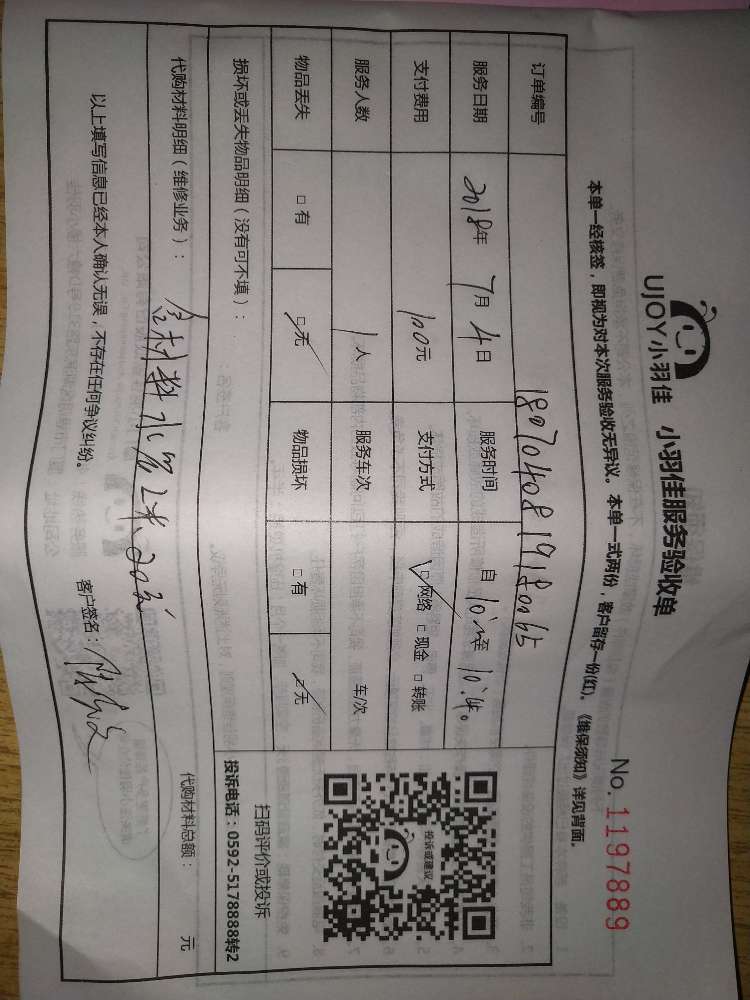 UJOY小羽佳 小羽佳服务验收单
No. 1197889
本单一经核签，即视为对本次服务验收无异议。本单一式两份，客户留存一份(红)。《维保须知》详见背面。
订单编号
服务日期 2018年 7月 4日 服务时间 自 至
支付费用 100元 支付方式 ☑网络 □现金 □转账
服务人数 1人 服务车次 车/次
物品丢失 □有 ☑无 物品损坏 □有 ☑无
投诉或建议
扫码评价或投诉
投诉电话：0592-5178888转2
损坏或丢失物品明细（没有可不填）：
代购材料明细（维修业务）： 含材料水管2米20元 代购材料总额： 元
以上填写信息已经本人确认无误，不存在任何争议纠纷。 客户签名：